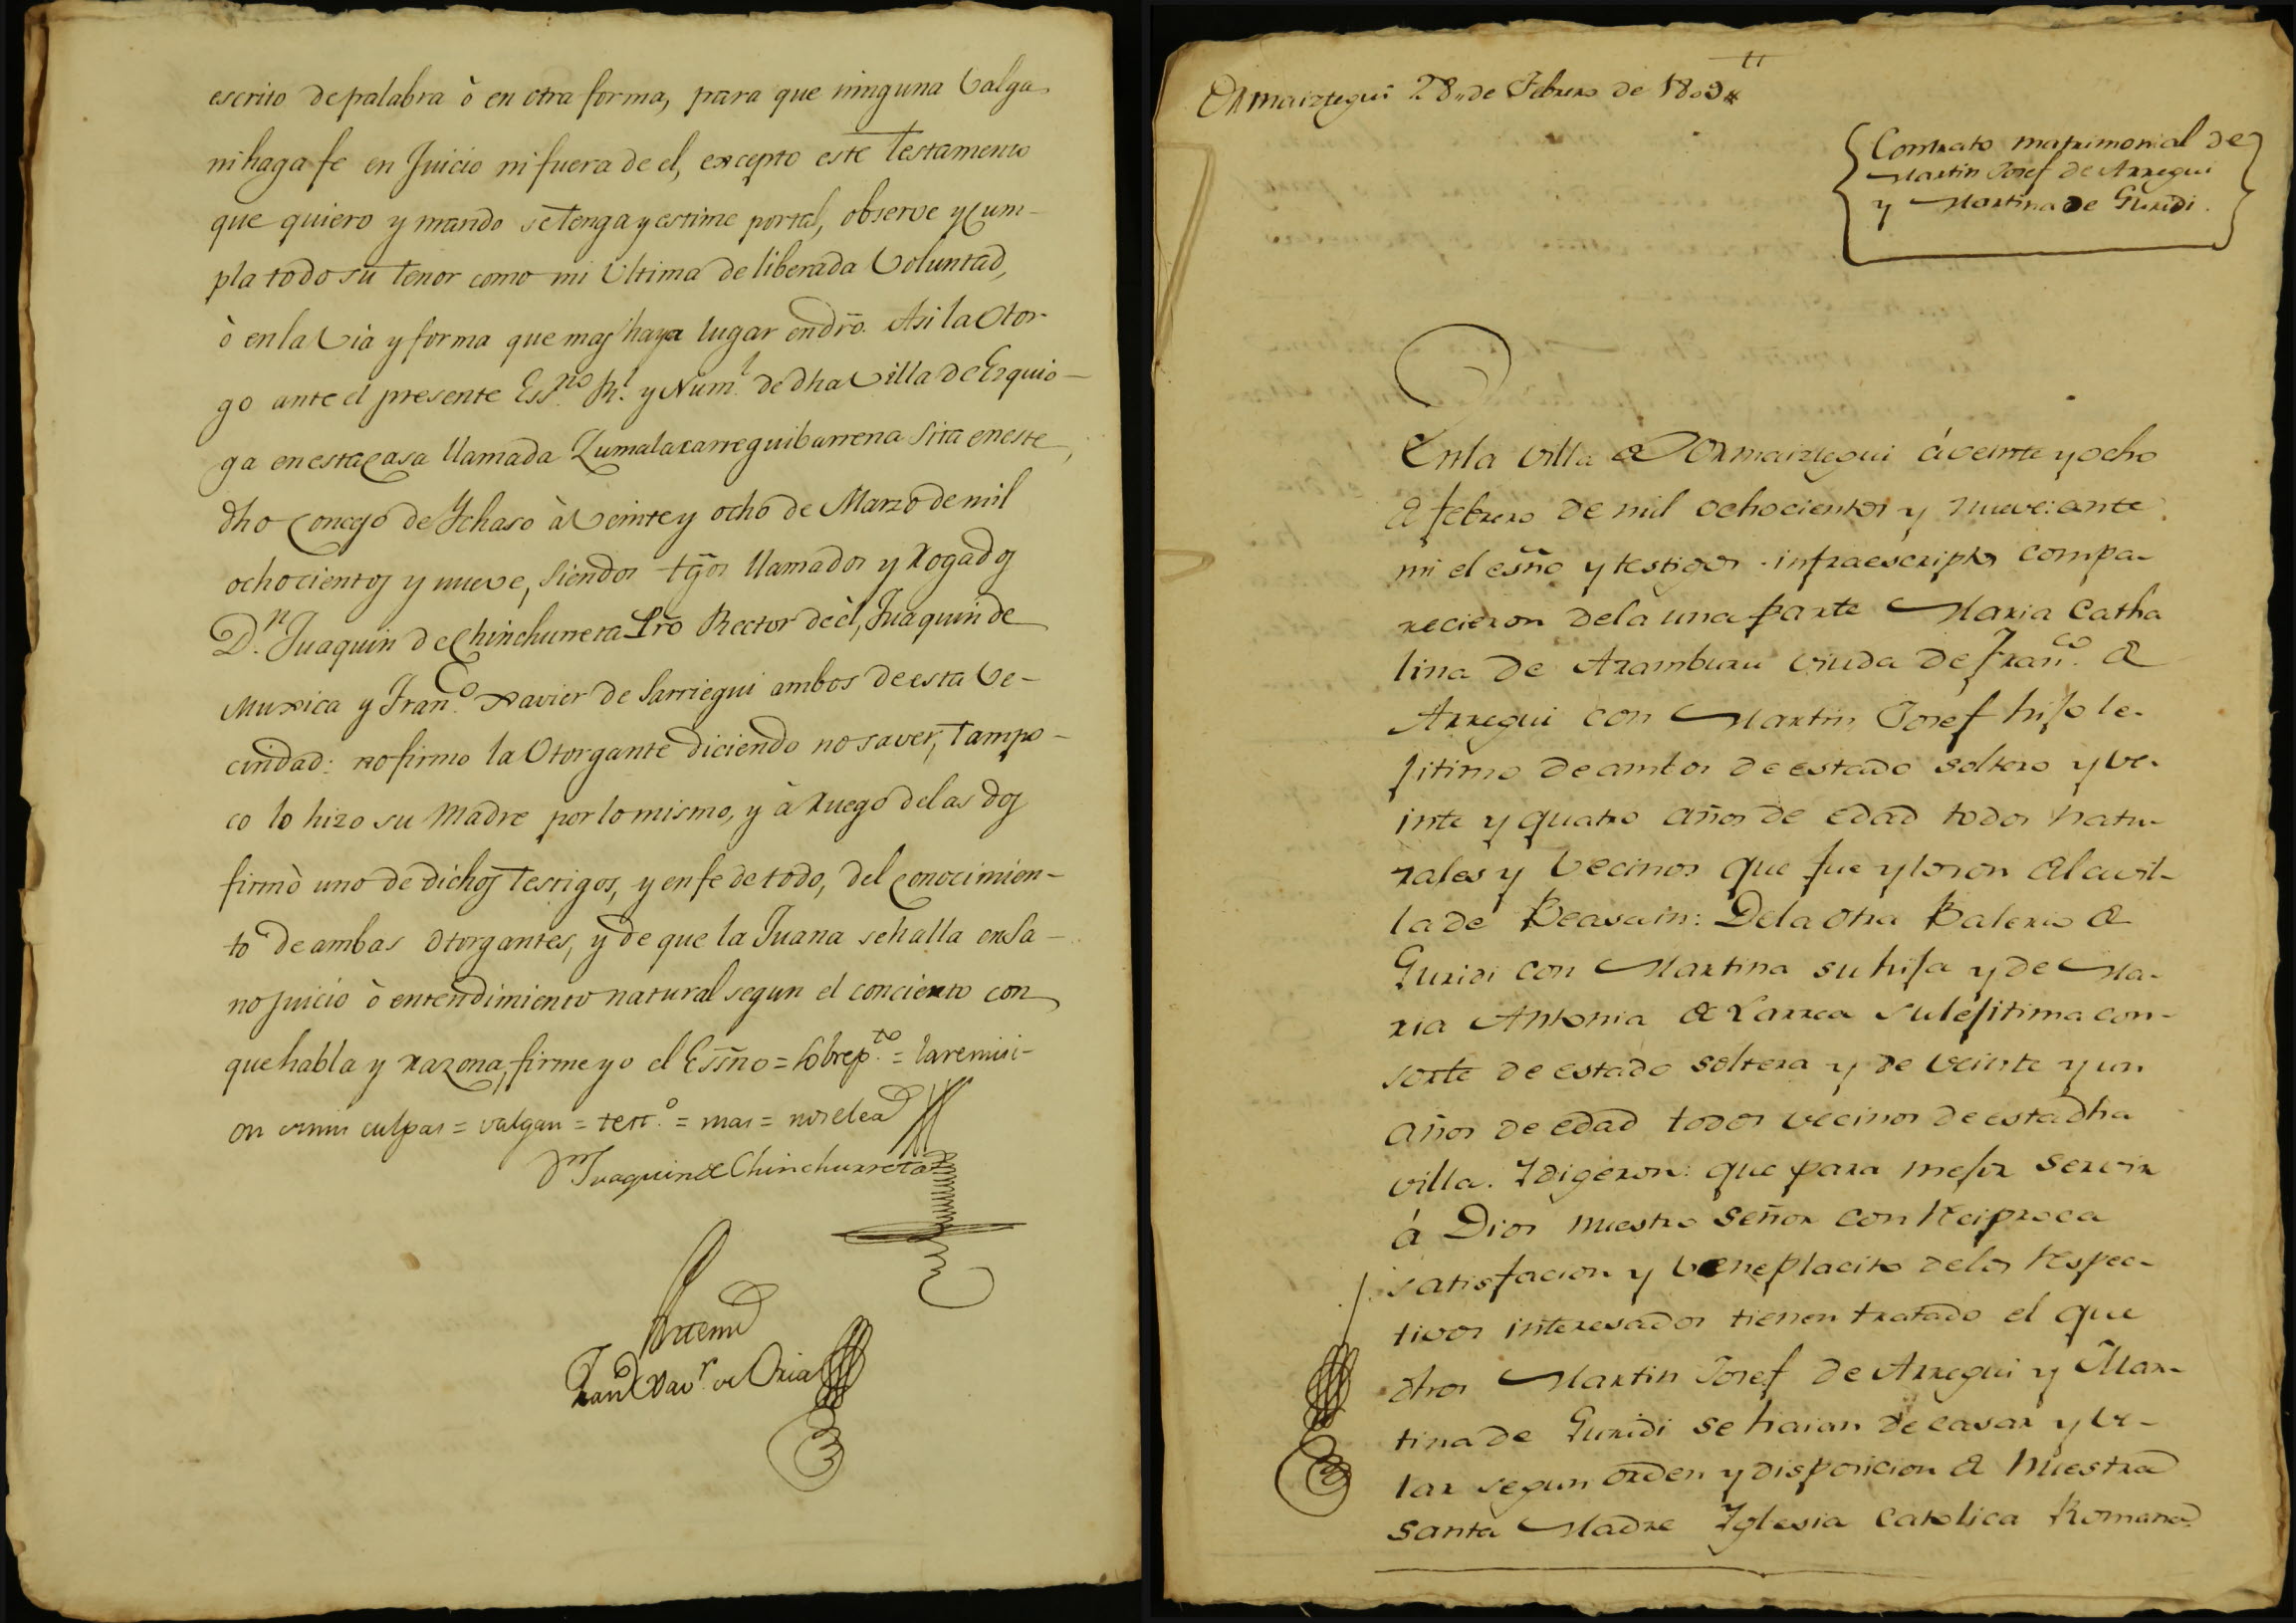 escrito de palabra ò en otra forma, para que ninguna Valga
ni haga fe en Juicio ni fuera de el, excepto este Testamento
que quiero y mando se tenga y estime por tal, observe y cum-
pla todo su tenor como mi Ultima deliberada Voluntad,
ò en la Via y forma que mas haya lugar en dro. Asi la Otor-
go ante el presente Essno. Rl. y Numl. de dha Villa de Ezquio-
ga en esta casa llamada Zumalaxarreguibarrena sita en este
dho Concejo de Ychaso à Veinte y ocho de Marzo de mil
ochocientos y nueve, siendos tgos llamados y Rogados
Dn. Juaquin de Chinchurreta Pro Rector de èl, Juaquin de
Muxica y Franco. Xavier de Sarriegui ambos de esta Ve-
cindad: no firmo la Otorgante diciendo no saver, tampo-
co lo hizo su Madre por lo mismo, y à Ruego de las dos
firmò uno de dichos Testigos, y en fe de todo, del conocimien-
to de ambas Otorgantes, y de que la Juana se halla en Sa-
no juicio ò entendimiento natural segun el concierto con
que habla y razona, firme yo el Essno = Sobrepto. = la remisi-
on mis culpas = valgan = testo. = mas = no se lea
Dn Juaquin de Chinchurreta
Antemi
Franco Xavr. de Oria
Ormaiztegui 28,, de Febrero de 1809
Contrato matrimonial de
Martin Josef de Arregui
y Martina de Guridi.
En la villa de Ormaiztegui á veinte y ocho
de febrero de mil ochocientos y nueve: ante
mi el esño y testigos infraescriptos compa-
recieron de la una parte Maria Catha
lina de Aramburu viuda de Franco. de
Arregui con Martin Josef hijo le-
jitimo de ambos de estado soltero y ve-
inte y quatro años de edad todos natu-
rales y vecinos que fue y lo son de la vil-
la de Beasain: De la otra Balerio de
Guridi con Martina su hija y de Ma-
ria Antonia de Larrea su lejitima con-
sorte de estado soltera y de veinte y un
años de edad todos vecinos de esta dha
villa. Y digeron: que para mejor servir
á Dios nuestro Señor con Reciproca
satisfacion y beneplacito de los Respec-
tivos interesados tienen tratado el que
dhos Martin Josef de Arregui y Mar-
tina de Guridi se haian de casar y ve-
lar segun orden y disposicion de Nuestra
Santa Madre Yglesia Catolica Romana